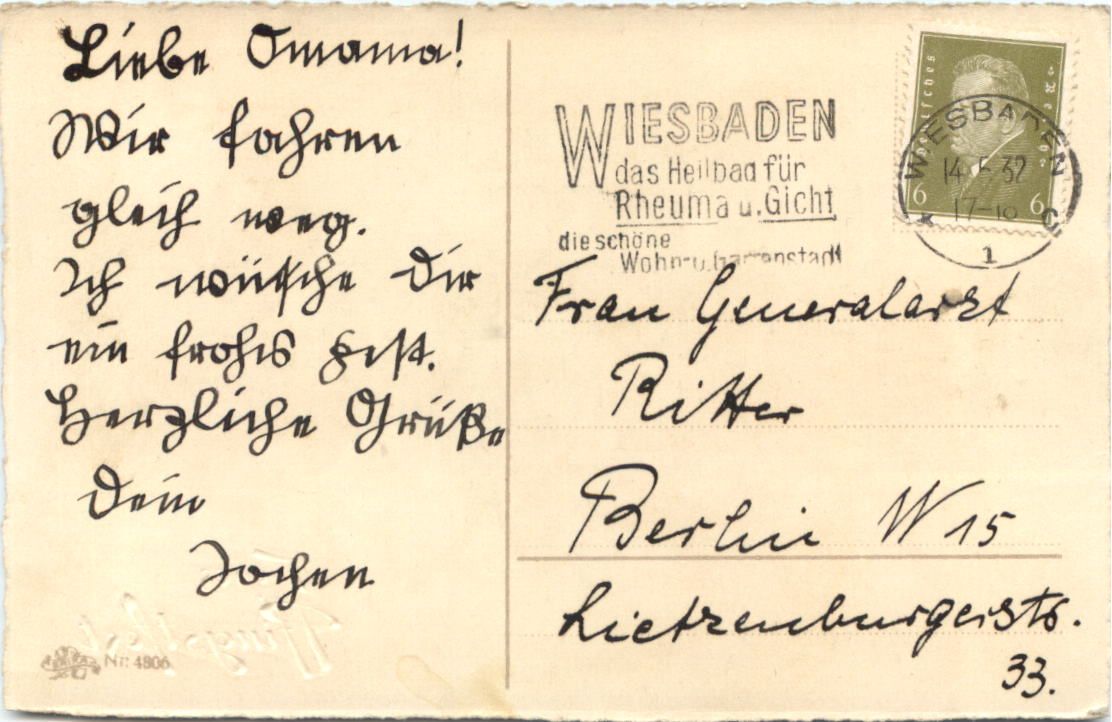 Liebe Omama!
Wir fahren
gleich weg.
Ich wünsche Dir
ein frohes Fest.
Herzliche Grüße
Dein
Jochen
Nr. 4806
WIESBADEN
das Heilbad für
Rheuma u. Gicht
die schöne
Wohn- u. Gartenstadt
Deutsches Reich
6 6
WIESBADEN
14.5.32
17-18
* 1 c
Frau Generalarzt
Ritter
Berlin W 15
Lietzenburgerstr.
33.